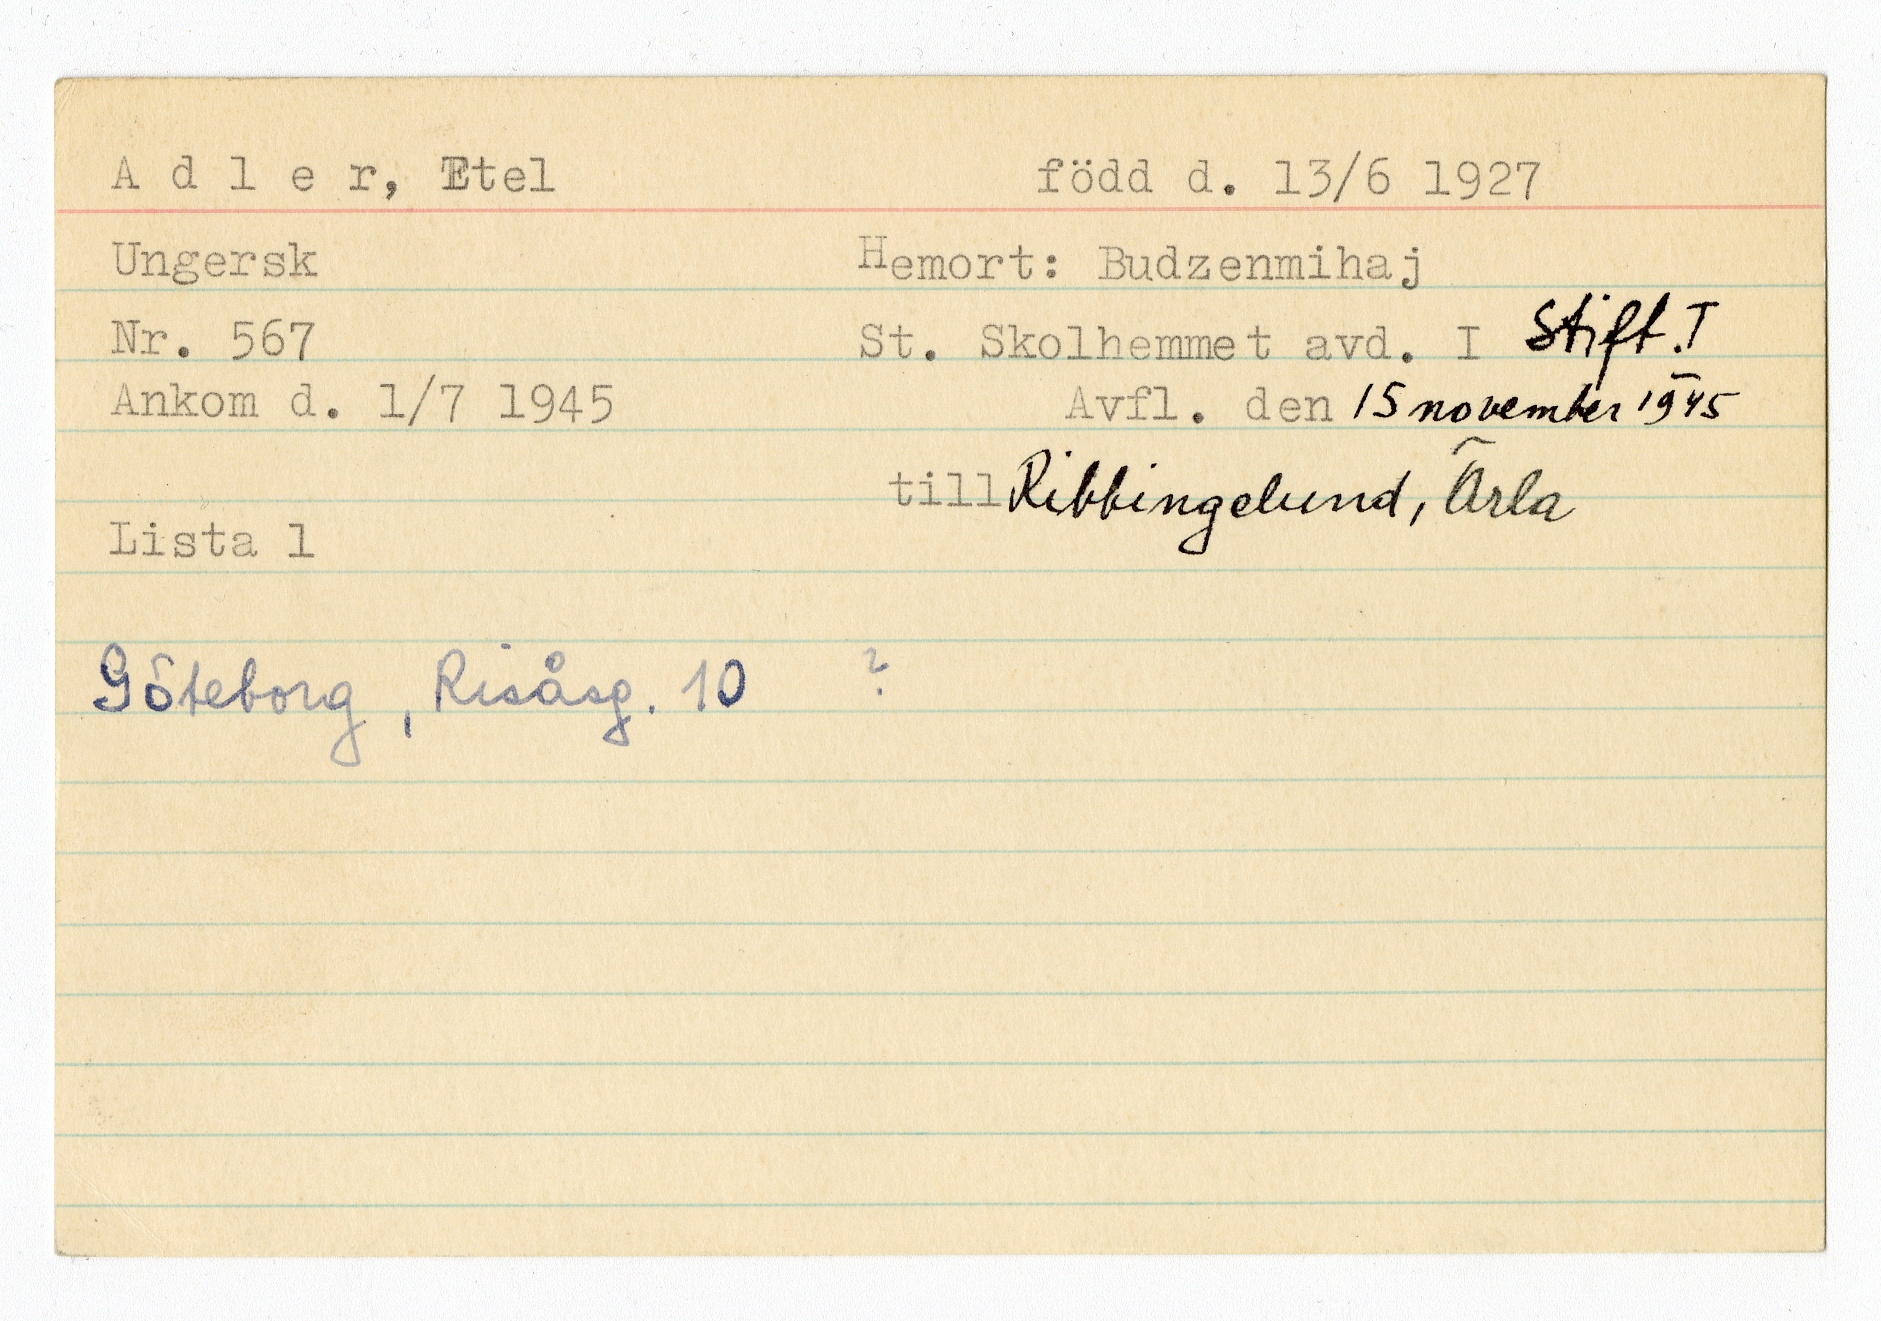 A d l e r, Etel född d. 13/6 1927
Ungersk Hemort: Budzenmihaj
Nr. 567 St. Skolhemmet avd. I Stift. I
Ankom d. 1/7 1945 Avfl. den 15 november 1945
till Ribbingelund, Ärla
Lista 1
Göteborg, Risåsg. 10 ?